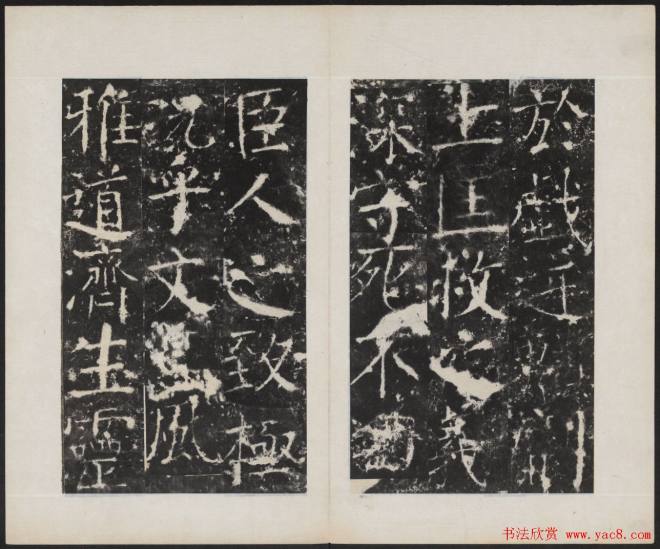 於戲逆
上匡救之義
深守死不回
臣人之致極
況乎文風
雅道濟生靈
书法欣赏 www.yac8.com